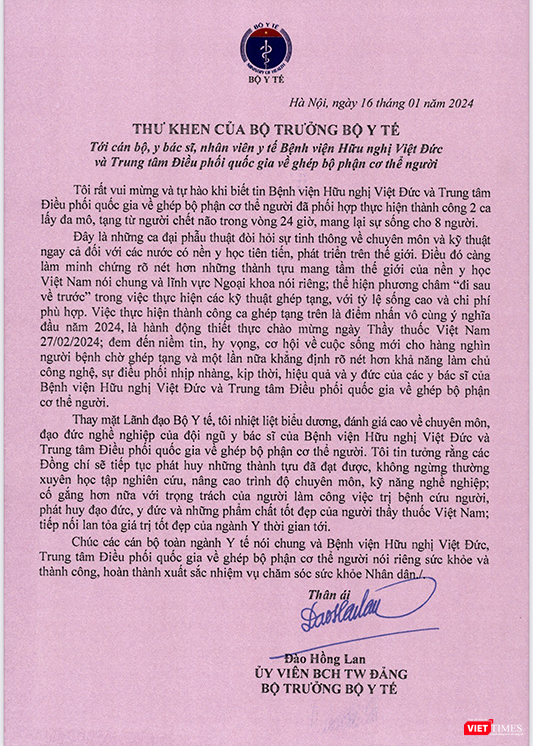 BỘ Y TẾ
MINISTRY OF HEALTH
BỘ Y TẾ
Hà Nội, ngày 16 tháng 01 năm 2024
THƯ KHEN CỦA BỘ TRƯỞNG BỘ Y TẾ
Tới cán bộ, y bác sĩ, nhân viên y tế Bệnh viện Hữu nghị Việt Đức
và Trung tâm Điều phối quốc gia về ghép bộ phận cơ thể người
Tôi rất vui mừng và tự hào khi biết tin Bệnh viện Hữu nghị Việt Đức và Trung tâm
Điều phối quốc gia về ghép bộ phận cơ thể người đã phối hợp thực hiện thành công 2 ca
lấy đa mô, tạng từ người chết não trong vòng 24 giờ, mang lại sự sống cho 8 người.
Đây là những ca đại phẫu thuật đòi hỏi sự tinh thông về chuyên môn và kỹ thuật
ngay cả đối với các nước có nền y học tiên tiến, phát triển trên thế giới. Điều đó càng
làm minh chứng rõ nét hơn những thành tựu mang tầm thế giới của nền y học
Việt Nam nói chung và lĩnh vực Ngoại khoa nói riêng; thể hiện phương châm “đi sau
về trước” trong việc thực hiện các kỹ thuật ghép tạng, với tỷ lệ sống cao và chi phí
phù hợp. Việc thực hiện thành công ca ghép tạng trên là điểm nhấn vô cùng ý nghĩa
đầu năm 2024, là hành động thiết thực chào mừng ngày Thầy thuốc Việt Nam
27/02/2024; đem đến niềm tin, hy vọng, cơ hội về cuộc sống mới cho hàng nghìn
người bệnh chờ ghép tạng và một lần nữa khẳng định rõ nét hơn khả năng làm chủ
công nghệ, sự điều phối nhịp nhàng, kịp thời, hiệu quả và y đức của các y bác sĩ của
Bệnh viện Hữu nghị Việt Đức và Trung tâm Điều phối quốc gia về ghép bộ phận
cơ thể người.
Thay mặt Lãnh đạo Bộ Y tế, tôi nhiệt liệt biểu dương, đánh giá cao về chuyên môn,
đạo đức nghề nghiệp của đội ngũ y bác sĩ của Bệnh viện Hữu nghị Việt Đức và
Trung tâm Điều phối quốc gia về ghép bộ phận cơ thể người. Tôi tin tưởng rằng các
Đồng chí sẽ tiếp tục phát huy những thành tựu đã đạt được, không ngừng thường
xuyên học tập nghiên cứu, nâng cao trình độ chuyên môn, kỹ năng nghề nghiệp;
cố gắng hơn nữa với trọng trách của người làm công việc trị bệnh cứu người,
phát huy đạo đức, y đức và những phẩm chất tốt đẹp của người thầy thuốc Việt Nam;
tiếp nối lan tỏa giá trị tốt đẹp của ngành Y thời gian tới.
Chúc các cán bộ toàn ngành Y tế nói chung và Bệnh viện Hữu nghị Việt Đức,
Trung tâm Điều phối quốc gia về ghép bộ phận cơ thể người nói riêng sức khỏe và
thành công, hoàn thành xuất sắc nhiệm vụ chăm sóc sức khỏe Nhân dân./.
Thân ái
DaoHonLan
Đào Hồng Lan
ỦY VIÊN BCH TW ĐẢNG
BỘ TRƯỞNG BỘ Y TẾ
VIETTIMES